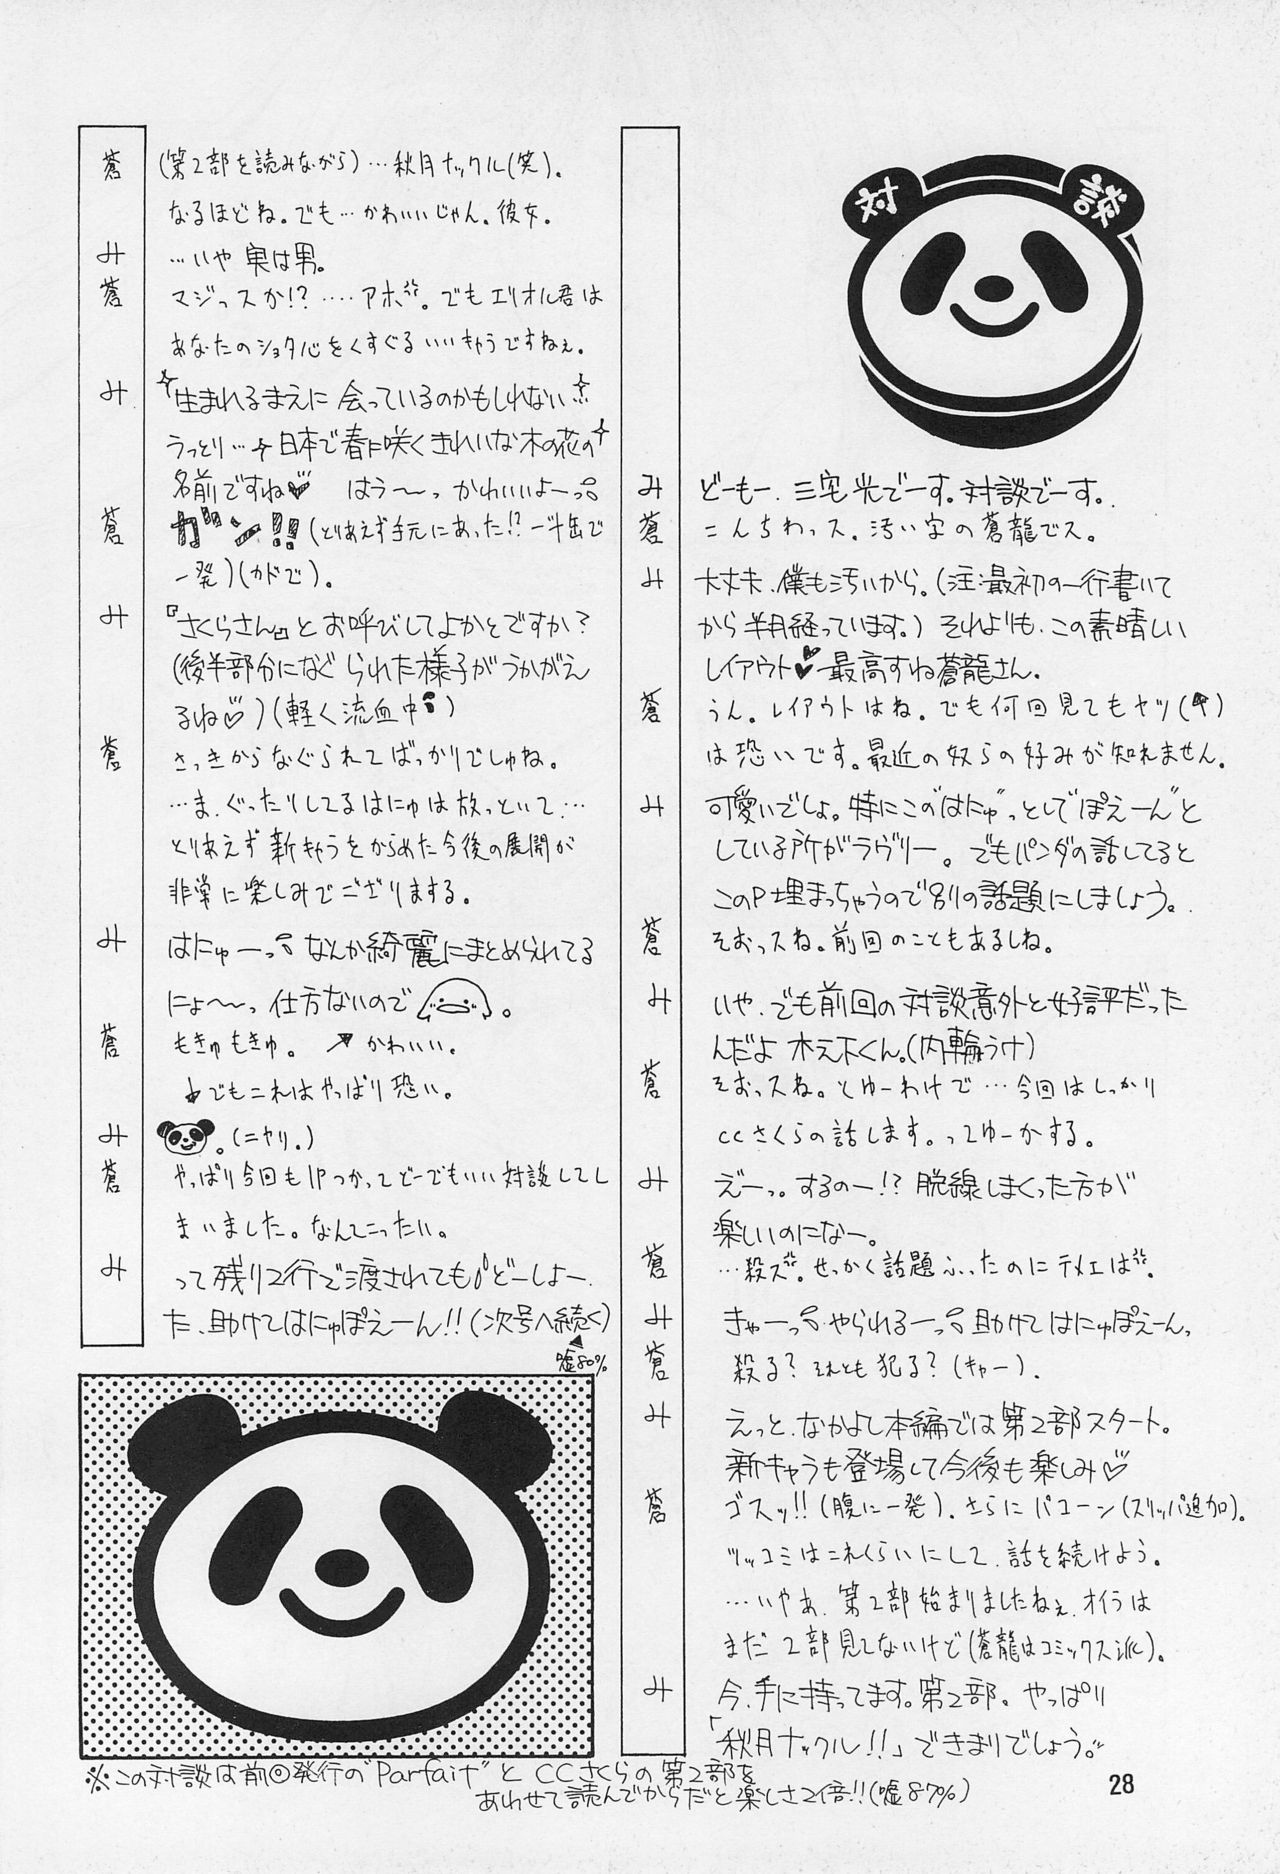 対談
み どーもー、三宅光でーす。対談でーす。
蒼 こんちわっス。汚い字の蒼龍でス。
み 大丈夫、僕も汚いから。(注:最初の一行書いて
から半月経っています。) それよりも、この素晴しい
レイアウト♥最高すね蒼龍さん。
蒼 うん。レイアウトはね。でも何回見てもヤツ(
は恐いです。最近の奴らの好みが知れません。
み 可愛いでしょ。特にこの"はにゅ"っとして"ぽえーん"と
している所がラヴリー。でもパンダの話してると
このP埋まっちゃうので別の話題にしましょう。
蒼 そおっスね。前回のこともあるしね。
み いや、でも前回の対談意外と好評だった
んだよ 木元下くん。(内輪うけ)
蒼 そおっスね。とゆーわけで…今回はしっかり
CCさくらの話します。ってゆーかする。
み えーっ。するのー!? 脱線しまくった方が
楽しいのになー。
蒼 …殺ズ。せっかく話題ふったのにテメエは。
み きゃーっ やられるーっ 助けてはにゅぽえーんっ
蒼 殺る? それとも犯る? (キャー)。
み えっと、なかよし本編では第2部スタート。
新キャラも登場して今後も楽しみ♡
蒼 ゴスッ!! (腹に一発)。さらにパコーン(スリッパ追加)。
ツッコミはこれくらいにして、話を続けよう。
…いやあ、第2部始まりましたねぇ、オイラは
まだ2部見てないけど(蒼龍はコミックス派)。
み 今、手に持ってます。第2部。やっぱり
「秋月ナックル!!」できまりでしょう。
蒼 (第2部を読みながら)…秋月ナックル(笑)。
なるほどね。でも…かわいいじゃん。彼女。
み …いや 実は男。
蒼 マジっスか!? ‥‥アホ。でもエリオル君は
あなたのショタ心をくすぐるいいキャラですねぇ。
み 生まれるまえに 会っているのかもしれない
うっとり…日本で春に咲くきれいな木の花の
名前ですね♡ はう〜っ かわいいよーっ
蒼 ガン!! (とりあえず手元にあった!? 一斗缶で
一発)(カドで)。
み 『さくらさん』とお呼びしてよかとですか?
(後半部分になぐられた様子がうかがえ
るね♡)(軽く流血中)
蒼 さっきからなぐられてばっかりでしゅね。
…ま、ぐったりしてるはにゅは放っといて…
とりあえず新キャラをからめた今後の展開が
非常に楽しみでござりまする。
み はにゅーっ なんか綺麗にまとめられてる
にょ〜っ 仕方ないので 。
蒼 もきゅもきゅ。 ↗かわいい。
↓でもこれはやっぱり恐い。
み 。(ニヤリ。)
蒼 やっぱり今回も1Pつかってどーでもいい対談してし
まいました。なんてこったい。
み って残り2行で渡されても どーしよー、
た、助けてはにゅぽえーん!! (次号へ続く)
嘘80%
※この対談は前回発行の"Parfait"とCCさくらの第2部を
あわせて読んでからだと楽しさ2倍!! (嘘87%)
28